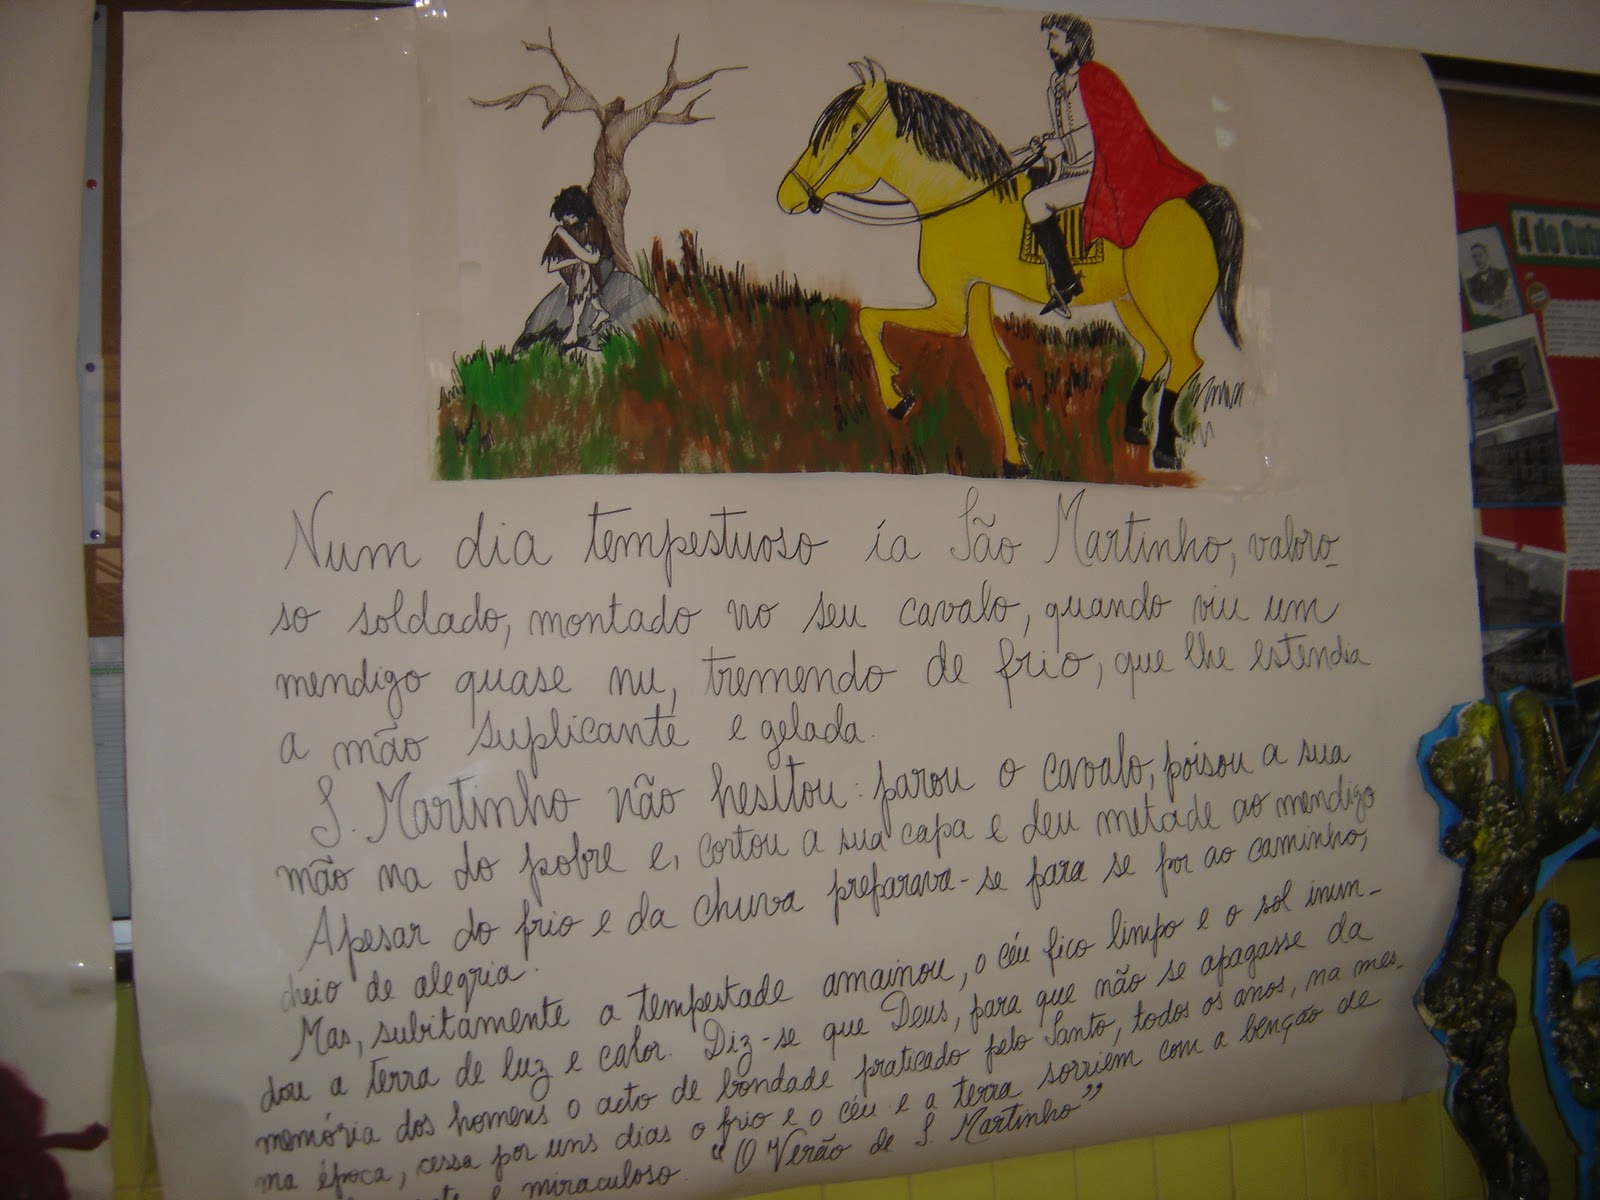 Num dia tempestuoso ía São Martinho, valoro-
so soldado, montado no seu cavalo, quando viu um
mendigo quase nu, tremendo de frio, que lhe estendia
a mão suplicante e gelada.
S. Martinho não hesitou: parou o cavalo, poisou a sua
mão na do pobre e, cortou a sua capa e deu metade ao mendigo
Apesar do frio e da chuva preparava-se para se por ao caminho,
cheio de alegria.
Mas, subitamente a tempestade amainou, o céu fico limpo e o sol inun-
dou a terra de luz e calor. Diz-se que Deus, para que não se apagasse da
memória dos homens o acto de bondade praticado pelo Santo, todos os anos, na mes-
ma época, cessa por uns dias o frio e o céu e a terra sorriem com a benção de
e miraculoso. "O Verão de S. Martinho"
4 de